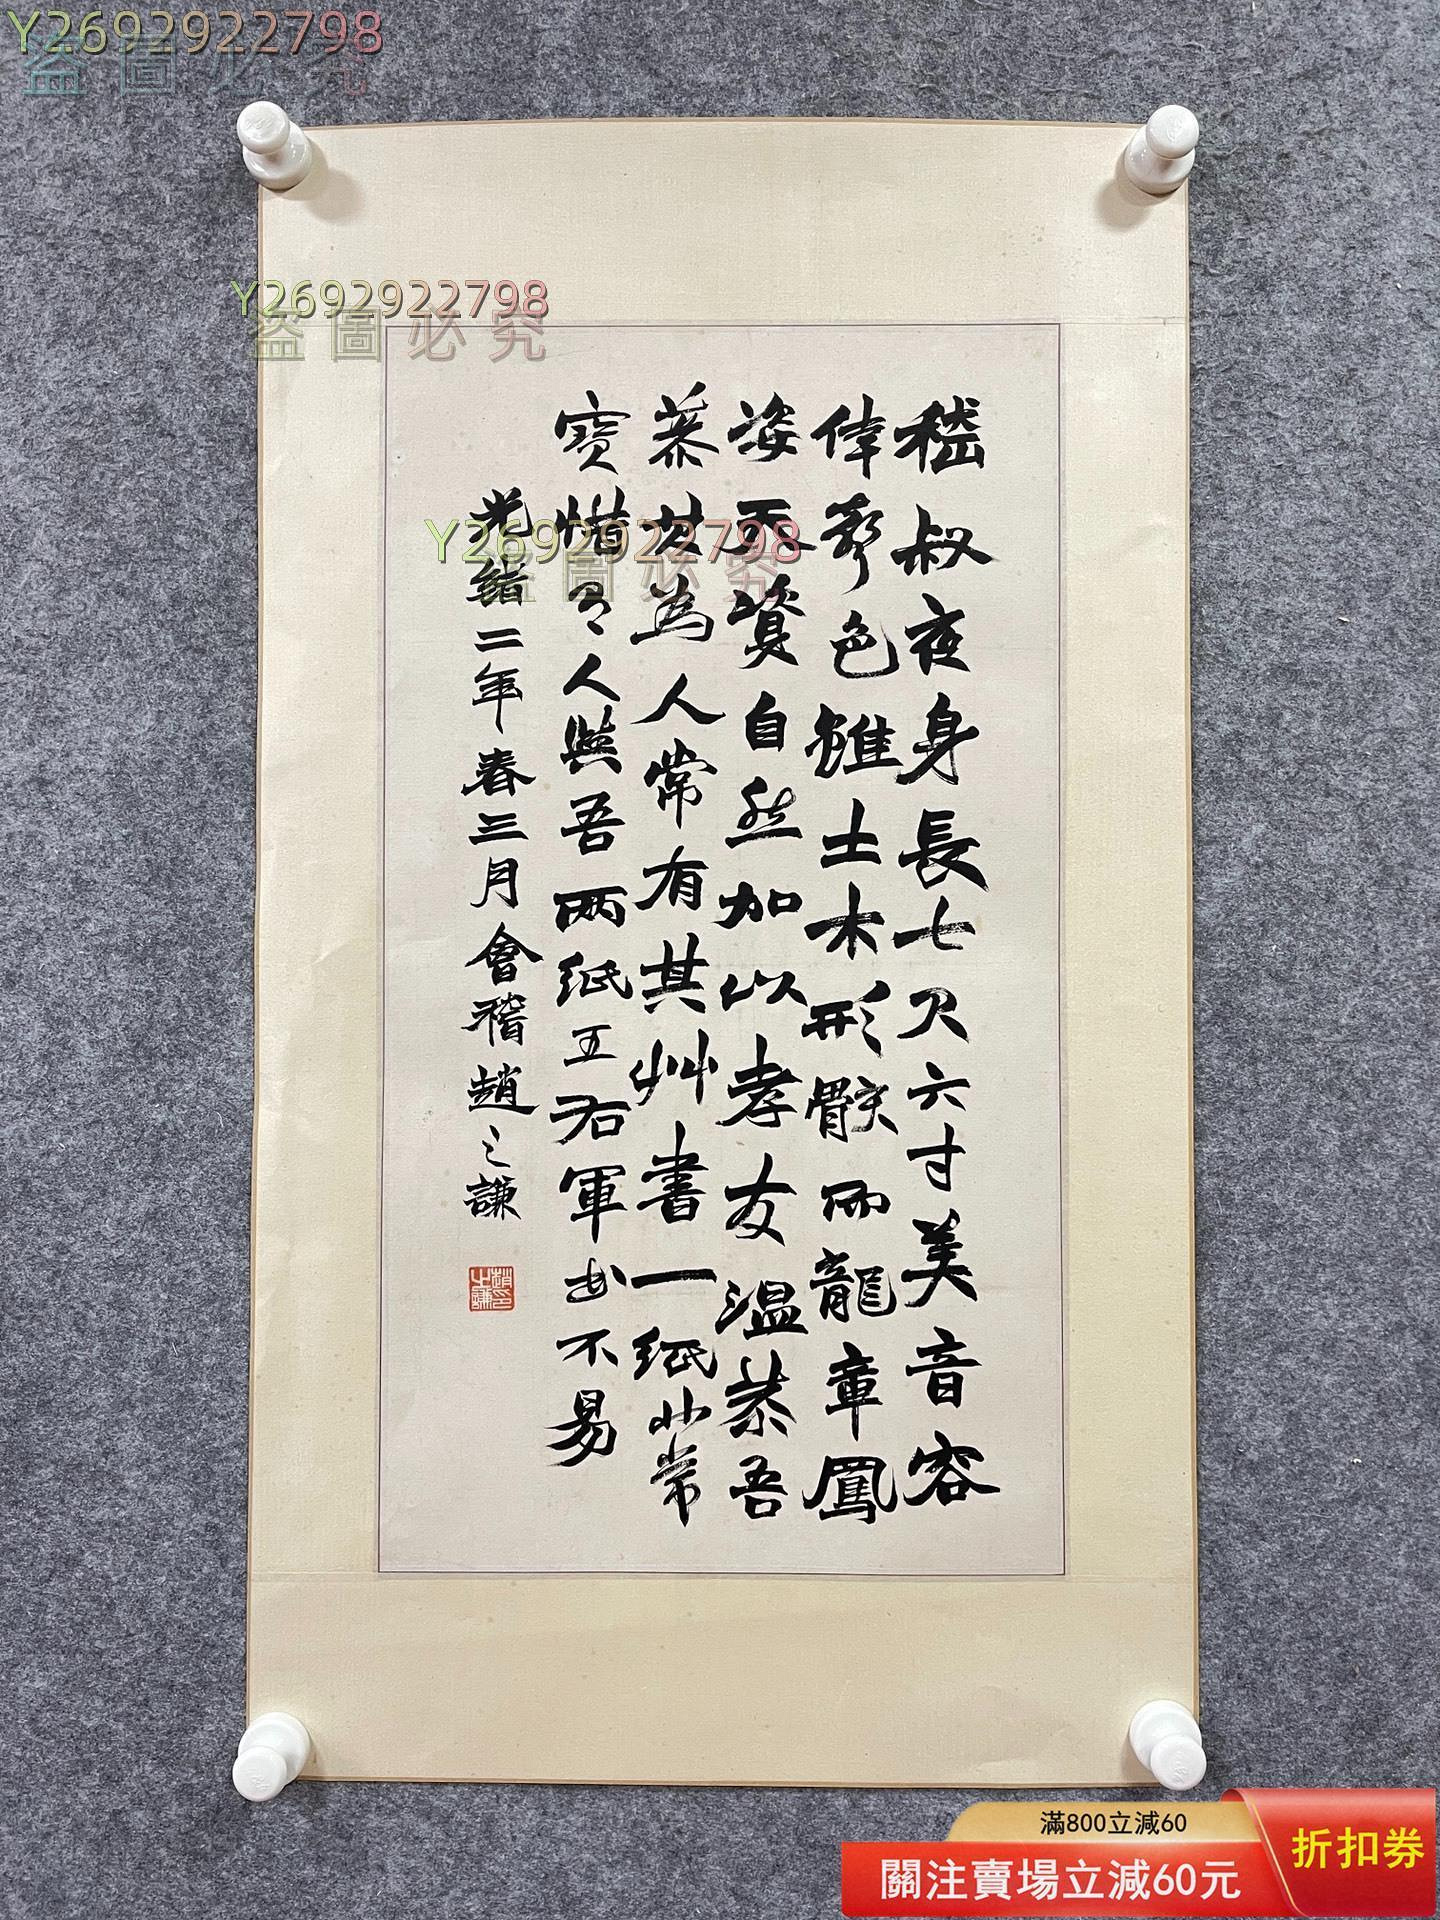 Y2692922798
盗圖必究
Y2692922798
盗圖必究
Y2692922798
盗圖必究
嵇叔夜身長七尺六寸美音容
偉容色雖土木形骸而龍章鳳
姿天質自然加以孝友溫恭吾
慕其為人常有其艸書一紙非常
寶惜有人與吾兩紙王右軍書不易
光緒二年春三月會稽趙之謙
趙之謙印
滿800立減60
折扣券
關注賣場立減60元